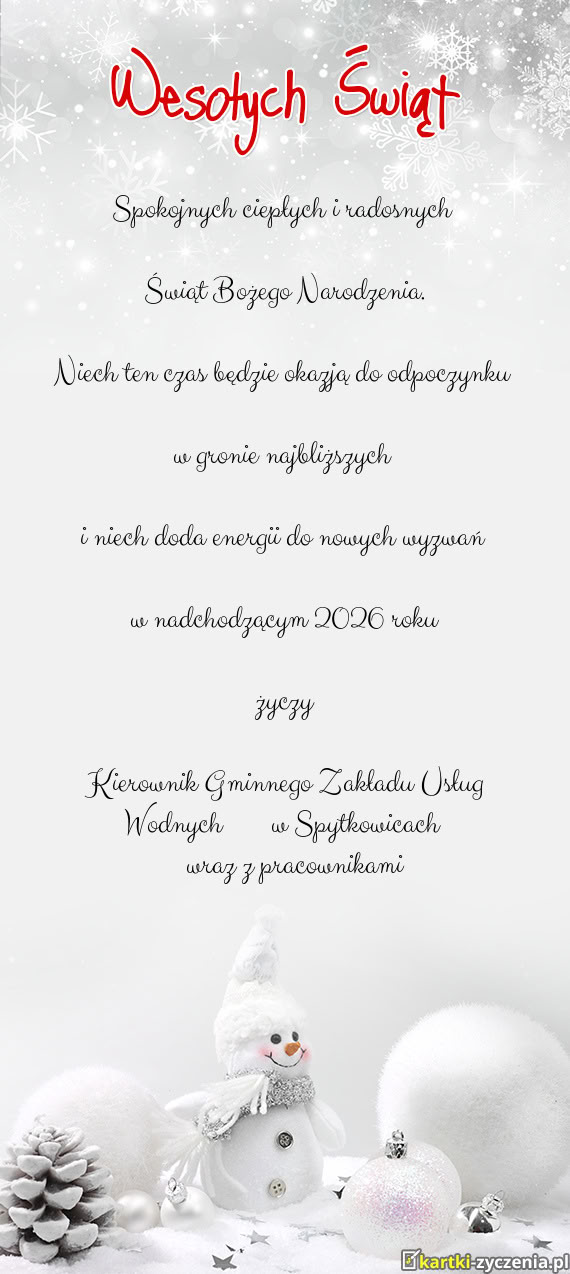 Wesołych Świąt
Spokojnych ciepłych i radosnych
Świąt Bożego Narodzenia.
Niech ten czas będzie okazją do odpoczynku
w gronie najbliższych
i niech doda energii do nowych wyzwań
w nadchodzącym 2026 roku
życzy
Kierownik Gminnego Zakładu Usług
Wodnych w Spytkowicach
wraz z pracownikami
kartki-zyczenia.pl